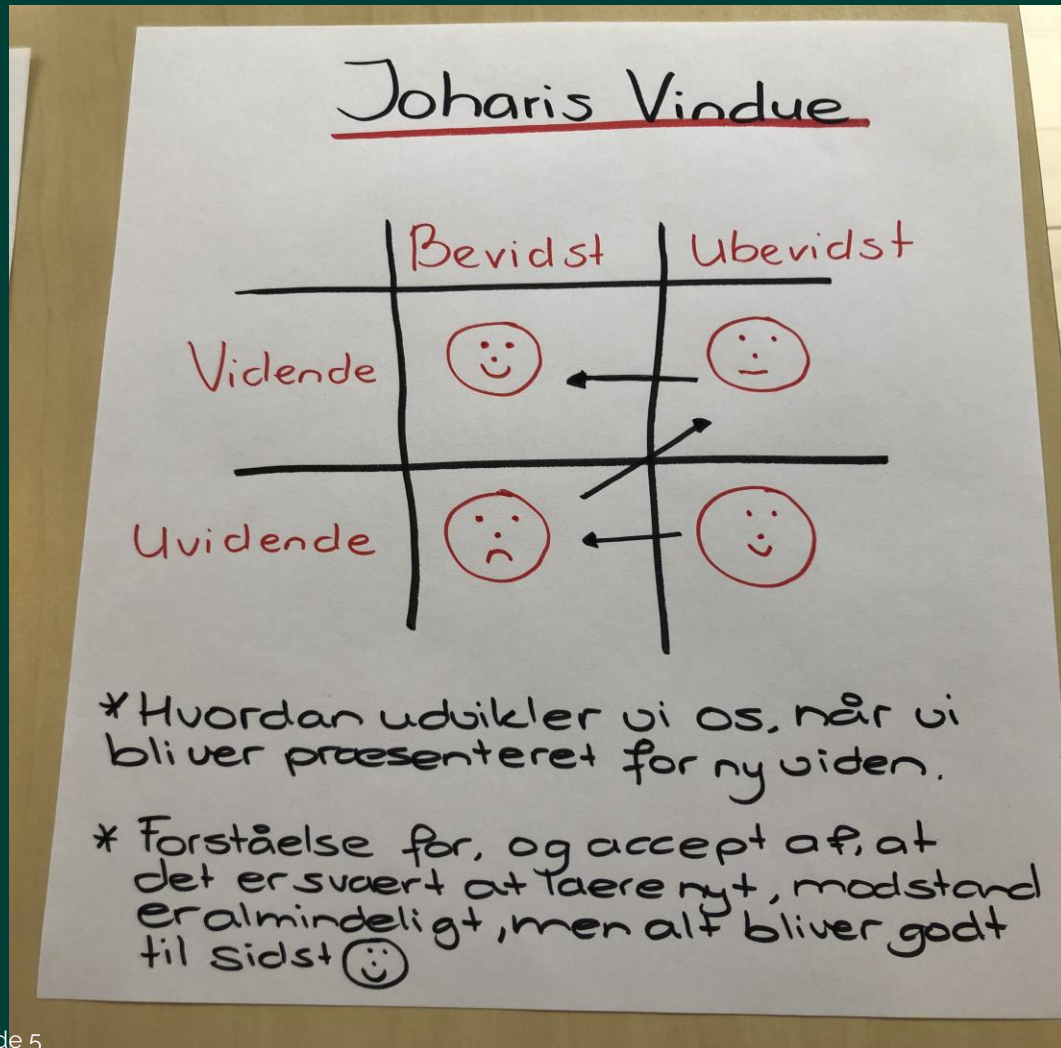 Joharis Vindue
Bevidst ubevidst
Vidende
Uvidende
* Hvordan udvikler vi os, når vi
bliver præsenteret for ny viden.
* Forståelse for, og accept af, at
det er svært at lære nyt, modstand
er almindeligt, men alt bliver godt
til sidst
de 5